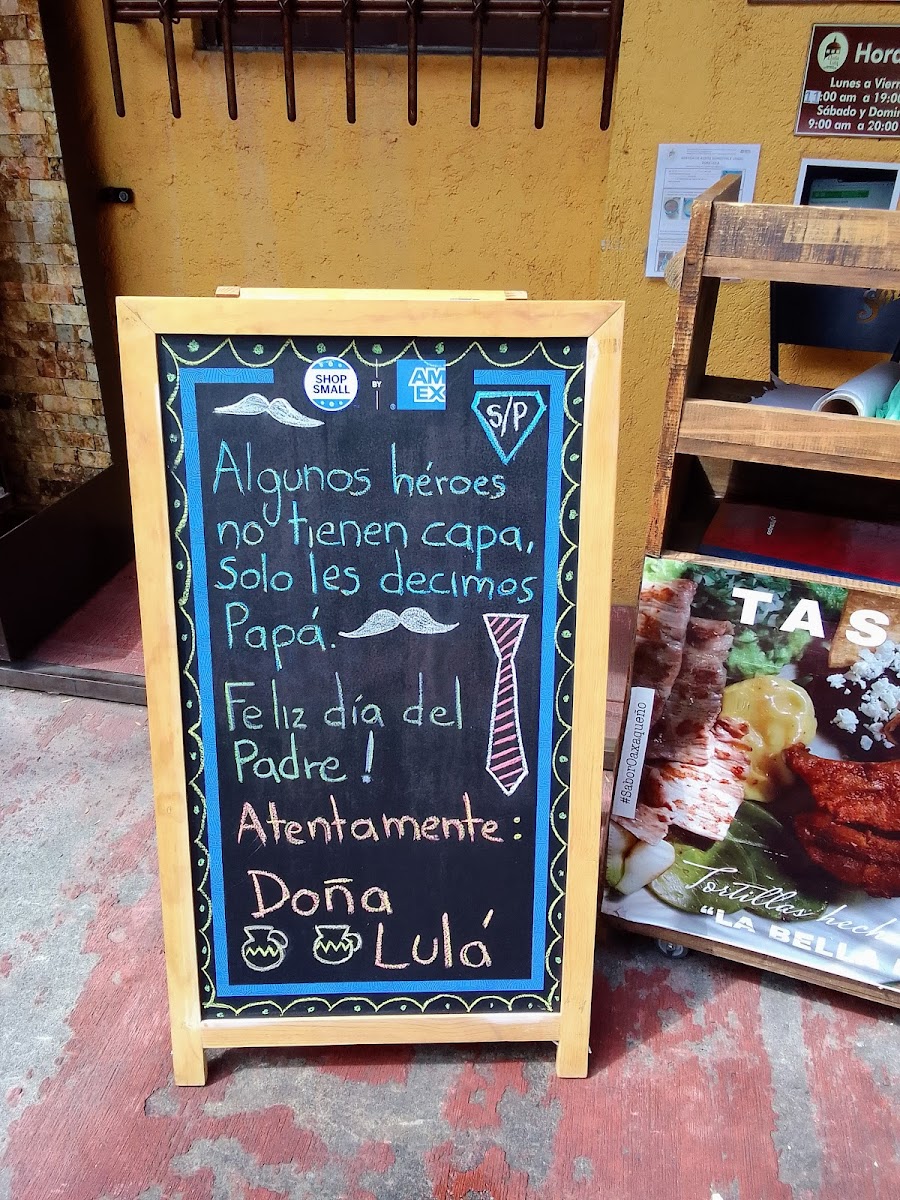 Hora
Lunes a Viern
11:00 am a 19:0
Sábado y Domin
9:00 am a 20:00
SHOP
SMALL
BY
AM
EX
S/P
Algunos héroes
no tienen capa,
Solo les decimos
Papá.
Feliz día del
Padre!
Atentamente:
Doña
Lulá
TAS
#SaborOaxaqueño
Tortillas hech
"LA BELL